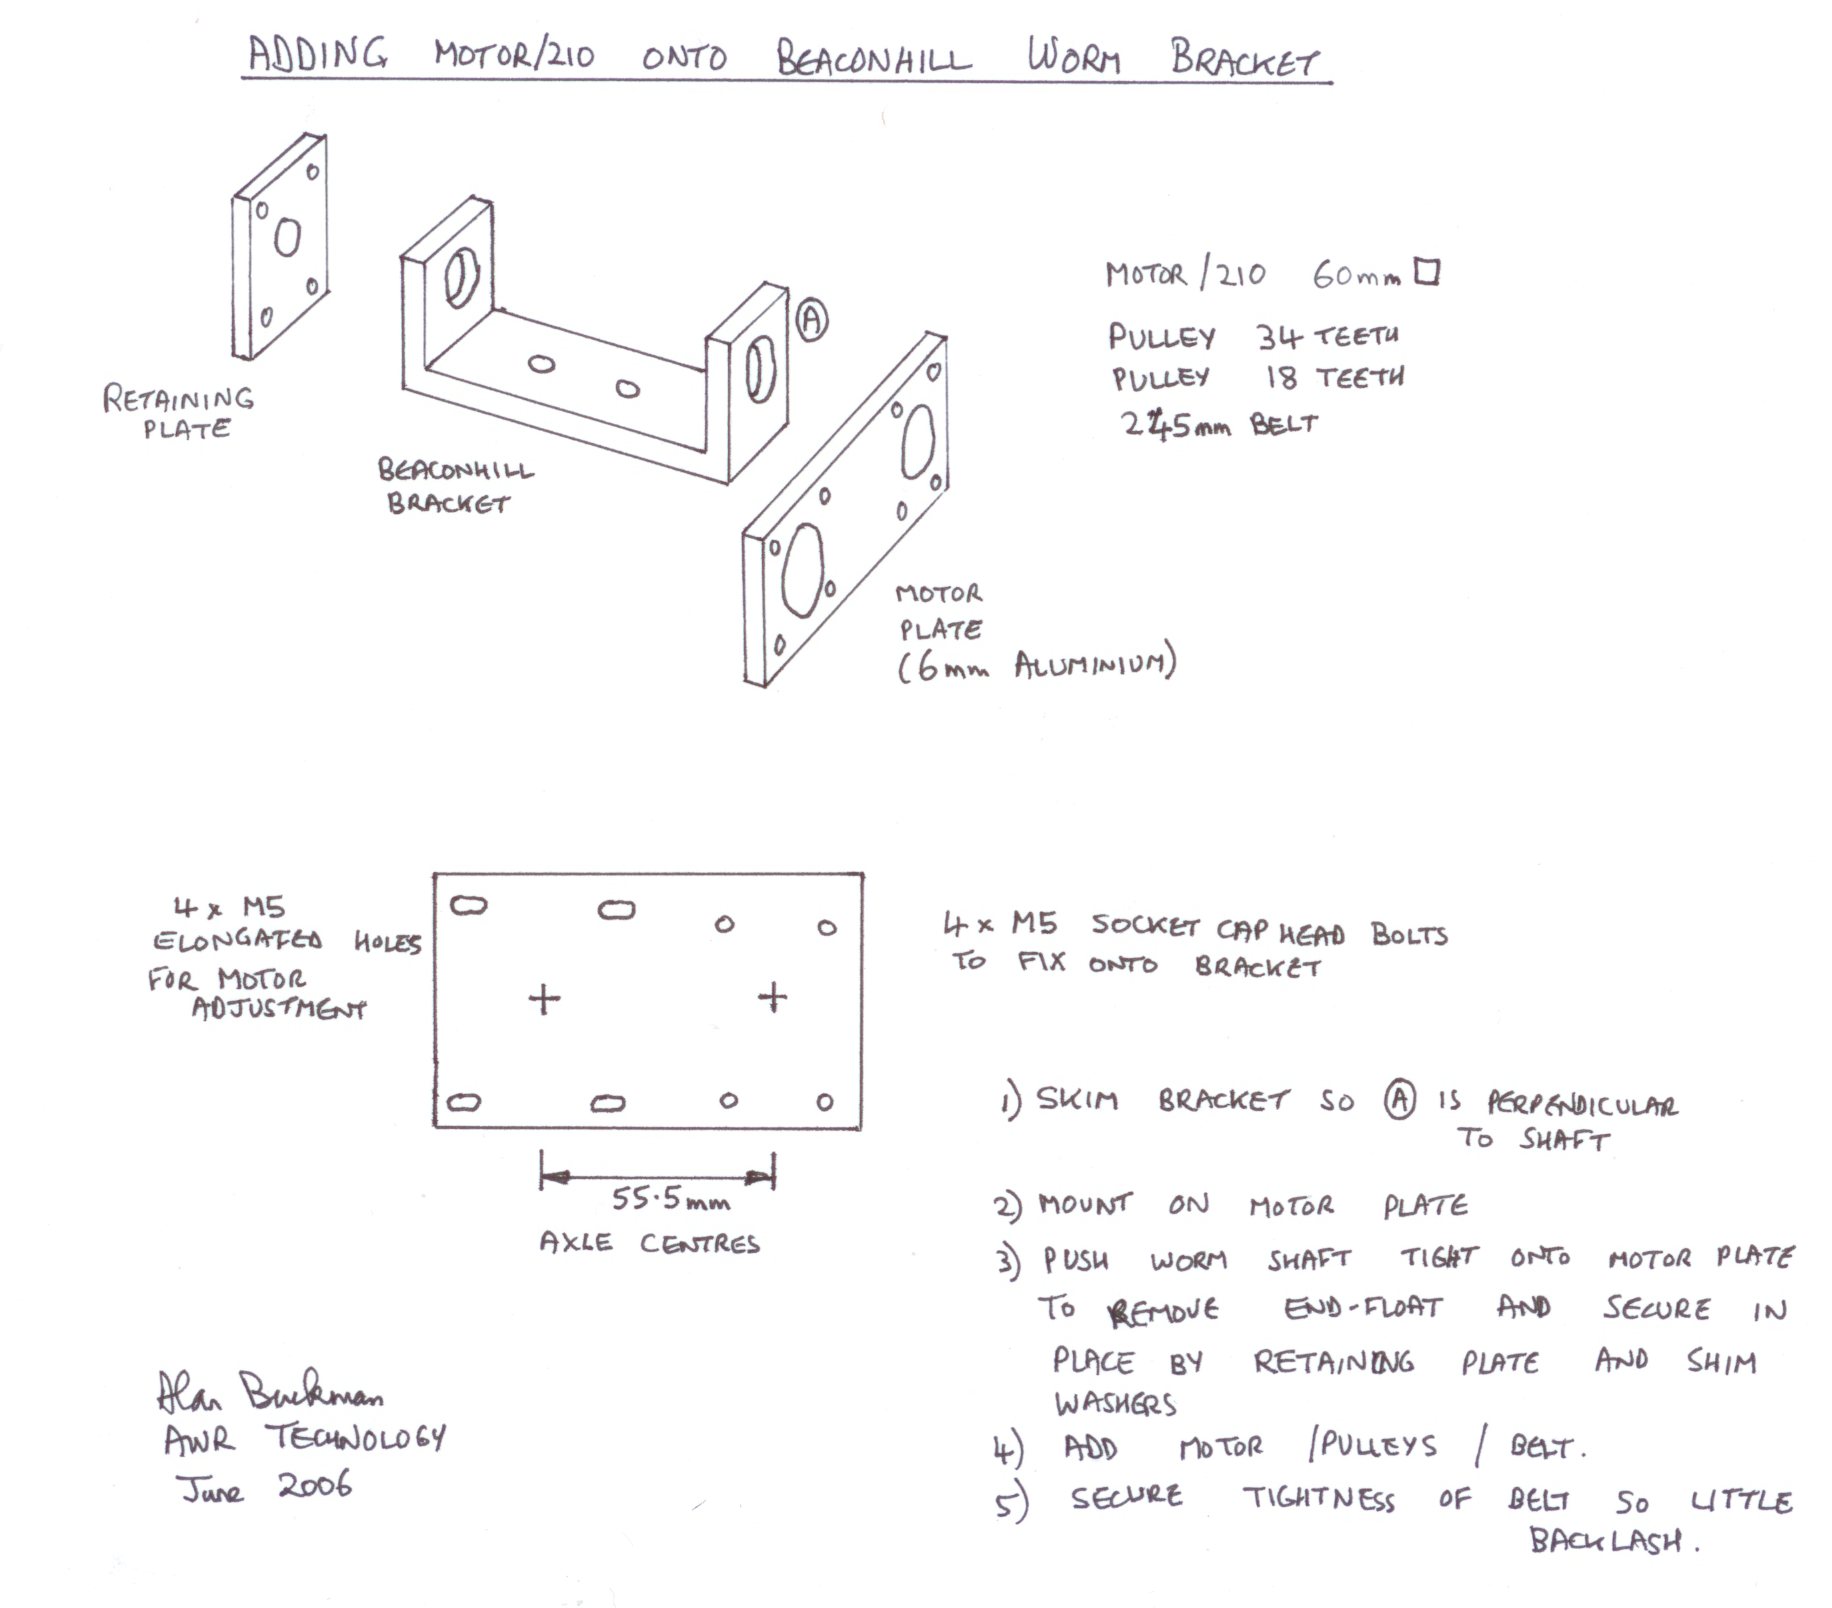 ADDING MOTOR/210 ONTO BEACONHILL WORM BRACKET
A
RETAINING
PLATE
BEACONHILL
BRACKET
MOTOR
PLATE
(6mm ALUMINIUM)
MOTOR/210 60mm □
PULLEY 34 TEETH
PULLEY 18 TEETH
245mm BELT
4 x M5
ELONGATED HOLES
FOR MOTOR
ADJUSTMENT
4 x M5 SOCKET CAP HEAD BOLTS
TO FIX ONTO BRACKET
55.5mm
AXLE CENTRES
1) SKIM BRACKET SO A IS PERPENDICULAR
TO SHAFT
2) MOUNT ON MOTOR PLATE
3) PUSH WORM SHAFT TIGHT ONTO MOTOR PLATE
TO REMOVE END-FLOAT AND SECURE IN
PLACE BY RETAINING PLATE AND SHIM
WASHERS
4) ADD MOTOR /PULLEYS / BELT.
5) SECURE TIGHTNESS OF BELT SO LITTLE
BACKLASH.
Alan Buckman
AWR TECHNOLOGY
June 2006